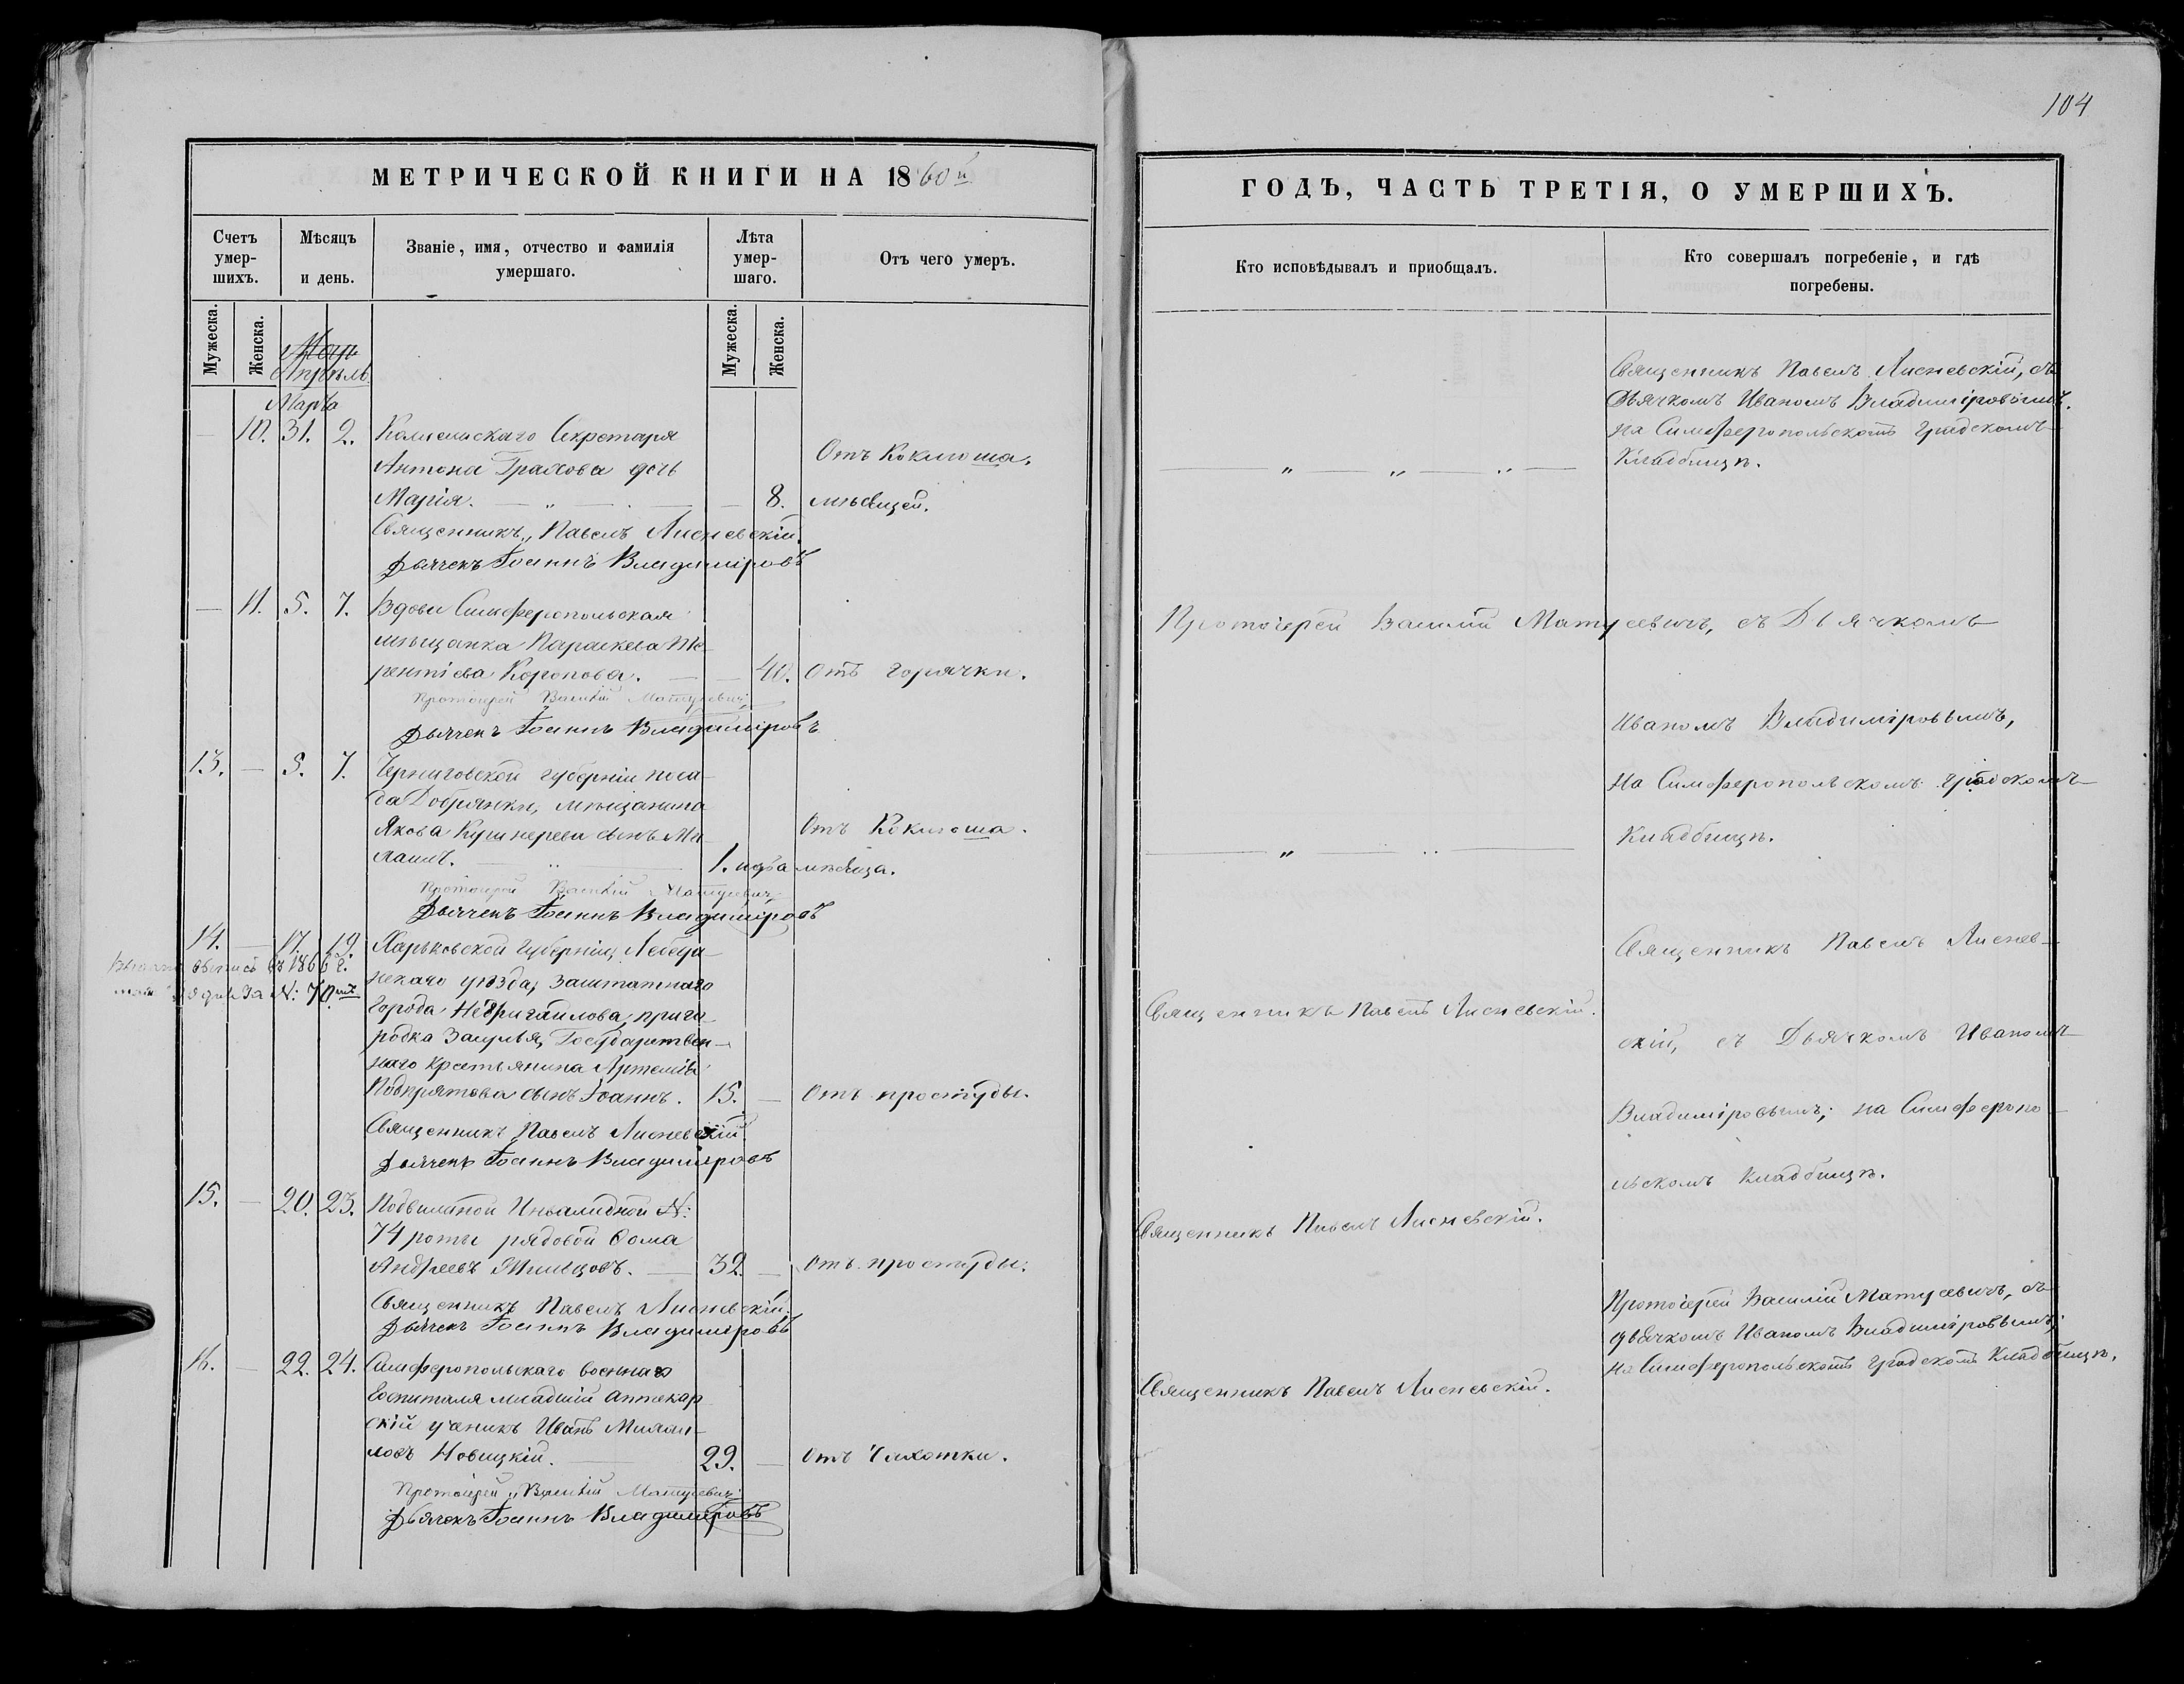 104
МЕТРИЧЕСКОЙ КНИГИ НА 1860й
Счетъ умер-шихъ.
Мѣсяцъ и день.
Званіе, имя, отчество и фамилія умершаго.
Лѣта умер-шаго.
Отъ чего умеръ.
Мужеска.
Женска.
Мужеска.
Женска.
Апрѣль
Марта
— 10. 31. 2. Колежскаго Секретаря
Антона Грахова дочь
Отъ Коклюша.
Марія. — „ — — 8. мѣсяцей.
Священникъ „ Павелъ Лисневскій.
Дьячекъ Іоаннъ Владиміровъ
— 11. 5. 7. Вдова Симферопольская
мѣщанка Параскева Те-
рентіева Коропова. — — 40. Отъ горячки.
Протоіерей Василій Матусевичъ
Дьячекъ Іоаннъ Владиміровъ
13. — 5. 7. Черниговской губерніи поса-
да Добрянки, мѣщанина
Якова Кушнерева сынъ Ми-
Отъ Коклюша.
хаилъ. — „ — 1. года мѣсяца.
Протоіерей Василій Матусевичъ
Дьячекъ Іоаннъ Владиміровъ
14. — 17. 19. Харьковской Губерніи, Лебедя-
въ 1866 г.
нскаго уѣзда, заштатнаго
за N: 70
города Недригайлова, приго-
родка Засулья, Государствен-
наго крестьянина Артемія
сынъ Іоаннъ. 15. — Отъ простуды.
Священникъ Павелъ Лисневскій
Дьячекъ Іоаннъ Владиміровъ
15. — 20. 23. Подвижной Инвалидной N:
74 роты рядовой Ѳома
Андреевъ — 32. — Отъ простуды.
Священникъ Павелъ Лисневскій.
Дьячекъ Іоаннъ Владиміровъ
16. — 22. 24. Симферопольскаго военнаго
Госпиталя младшій аптекар-
скій ученикъ Иванъ Михаи-
ловъ Новицкій. — 29. — Отъ Чахотки.
Протоіерей „ Василій Матусевичъ
Дьячекъ Іоаннъ Владиміровъ
ГОДЪ, ЧАСТЬ ТРЕТІЯ, О УМЕРШИХЪ.
Кто исповѣдывалъ и приобщалъ.
Кто совершалъ погребеніе, и гдѣ погребены.
Священникъ Павелъ Лисневскій, съ
Дьячкомъ Иваномъ Владиміровымъ.
на Симферопольскомъ градскомъ
„ — „ — „ — Кладбищѣ.
Протоіерей Василій Матусевичъ, съ Дьячкомъ
Иваномъ Владиміровымъ,
на Симферопольскомъ градскомъ
— „ — „ — Кладбищѣ.
Священникъ Павелъ Лиснев-
Священникъ Павелъ Лисневскій.
скій, съ Дьячкомъ Иваномъ
Владиміровымъ; на Симферопо-
льскомъ кладбищѣ.
Священникъ Павелъ Лисневскій.
Протоіерей Василій Матусевичъ, съ
дьячкомъ Иваномъ Владиміровымъ,
на Симферопольскомъ градскомъ Кладбищѣ.
Священникъ Павелъ Лисневскій.